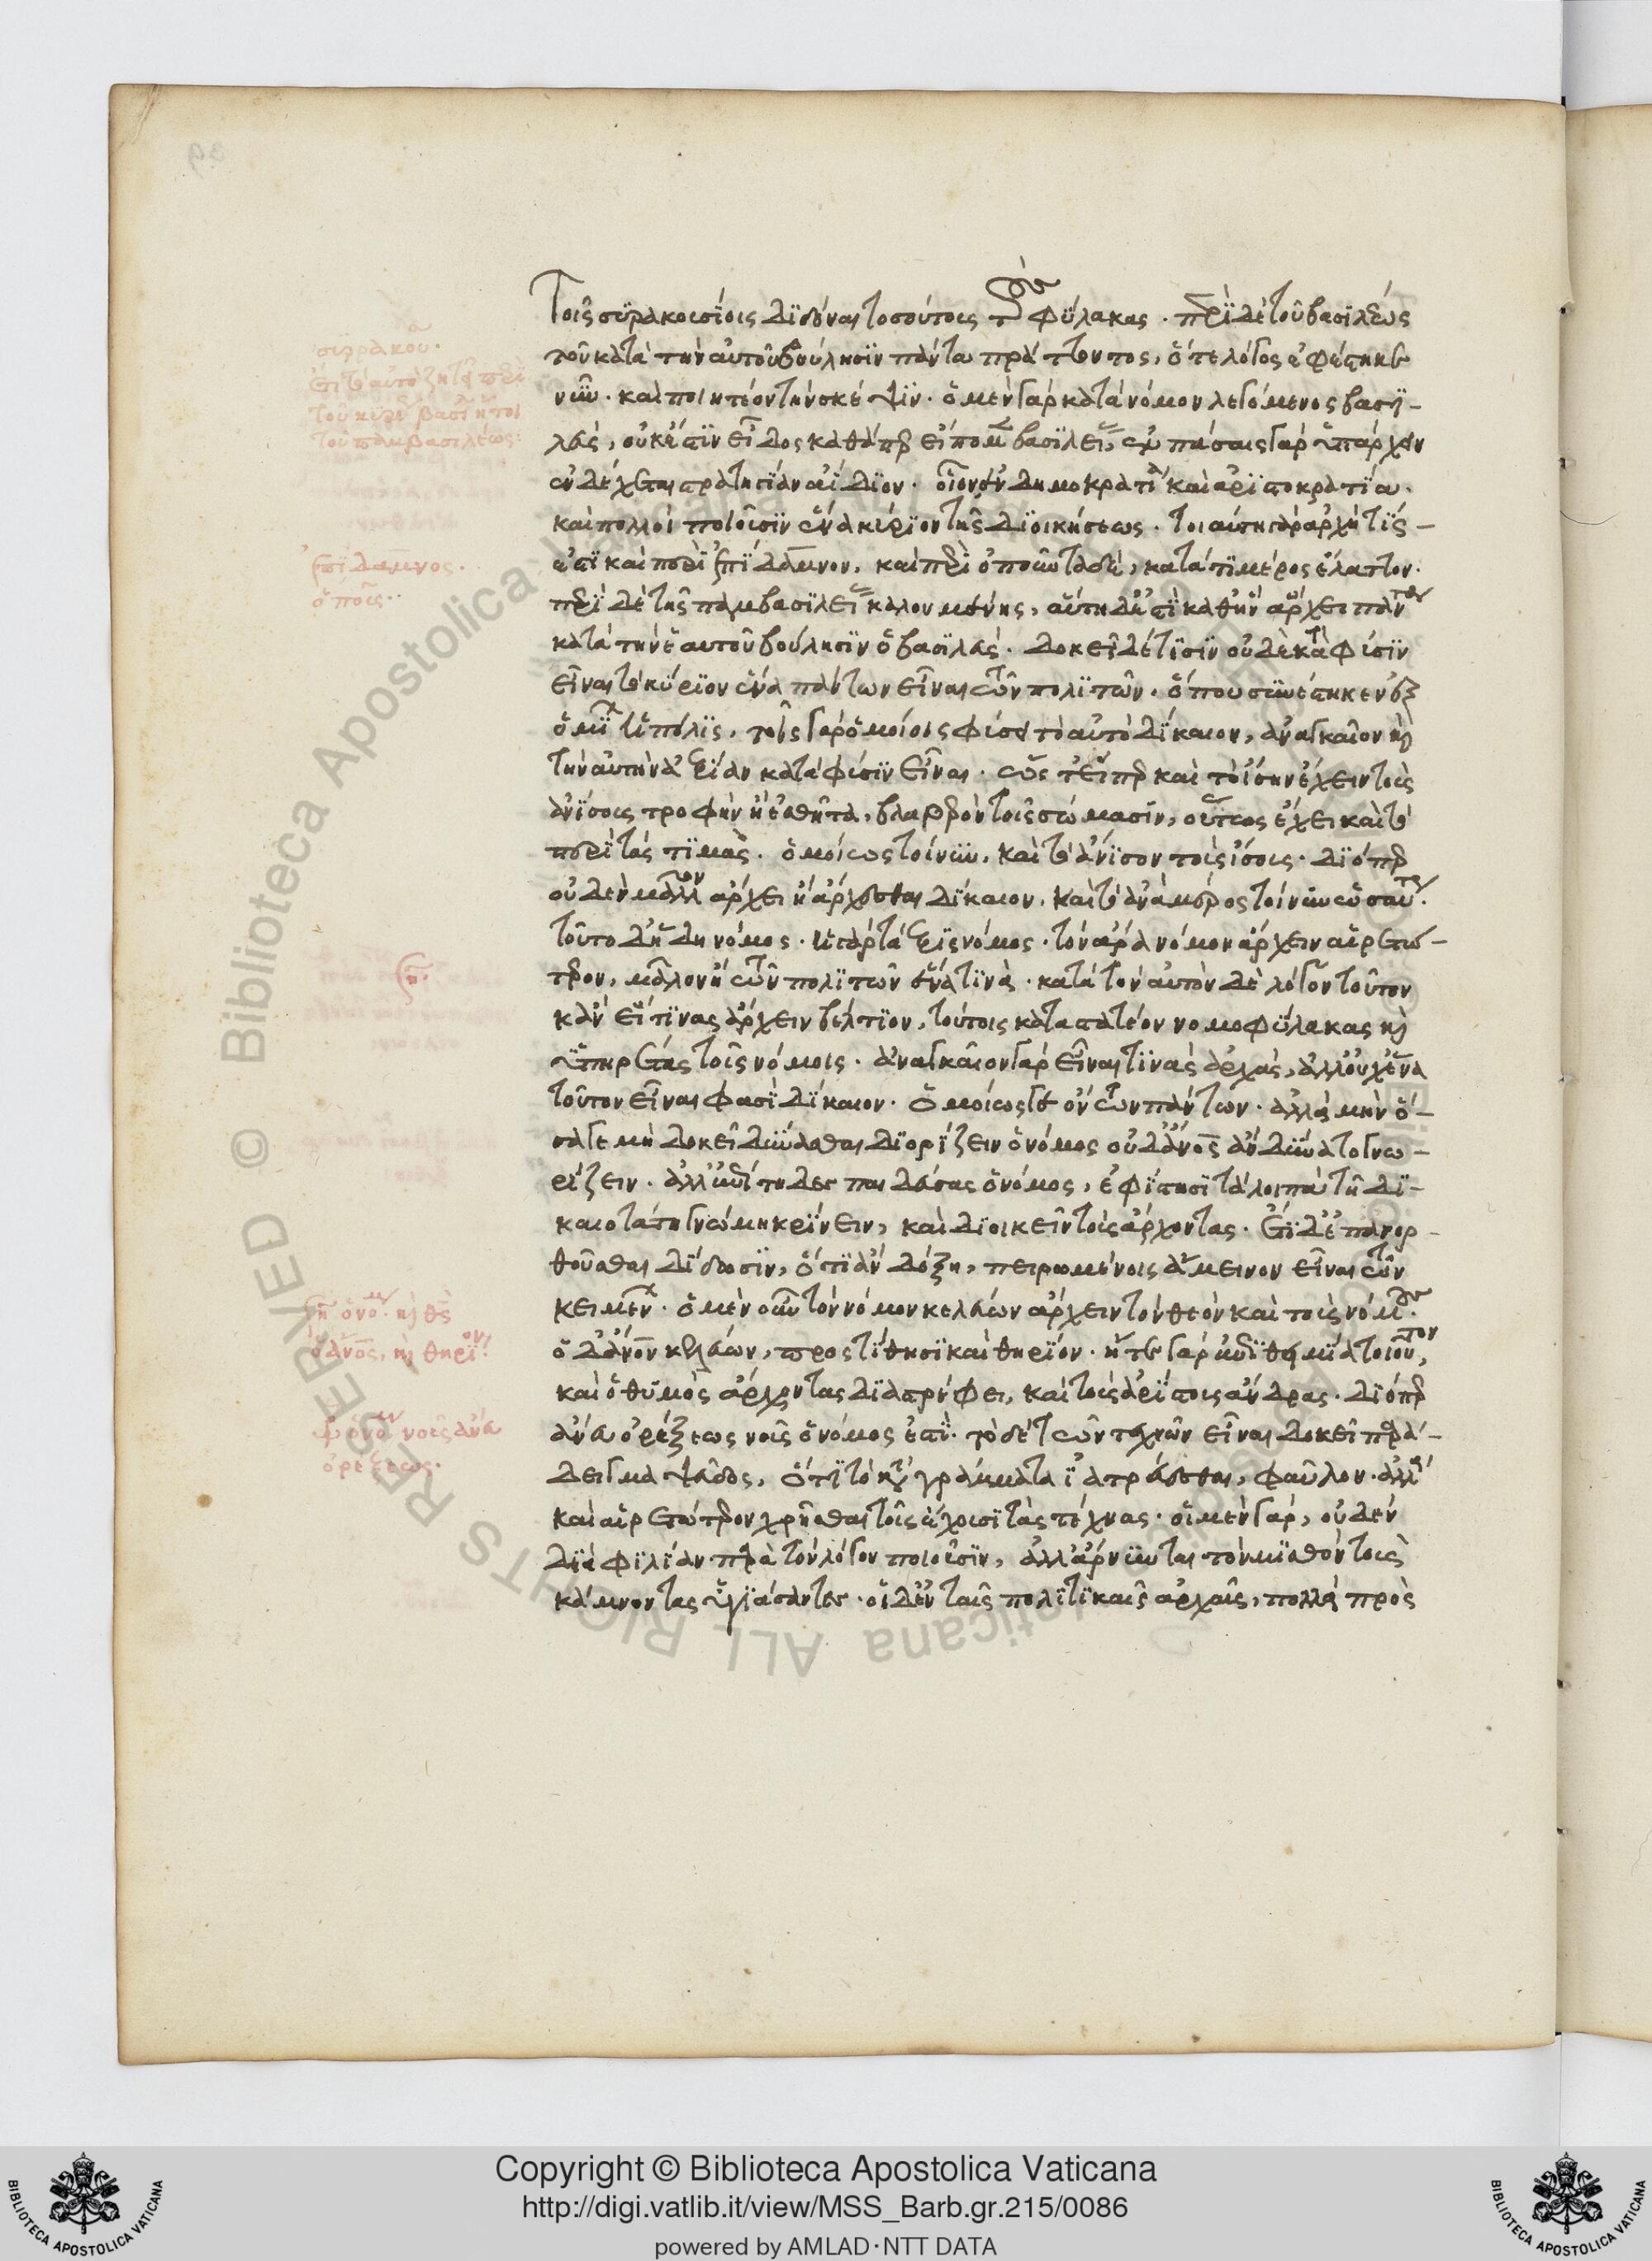 Τοῖς συρακουσίοις διδόναι τοσούτους τοὺς φύλακας. περὶ δὲ τοῦ βασιλέως
τοῦ κατὰ τὴν αὐτοῦ βούλησιν πάντα πράττοντος, ὅ τε λόγος ἐφέστηκε
νῦν. καὶ ποιητέον τὴν σκέψιν. ὁ μὲν γὰρ κατὰ νόμον λεγόμενος βασι-
λεὺς, οὐκ ἔστιν εἶδος καθάπερ εἴπομεν βασιλείας, ἐν πάσαις γὰρ ὑπάρχειν
ἐνδέχεται στρατηγίαν ἀΐδιον. οἷον ἐν δημοκρατία καὶ ἀριστοκρατία.
καὶ πολλοὶ ποιοῦσιν ἕνα κύριον τῆς διοικήσεως. τοιαύτη γὰρ ἀρχὴ τίς
ἐστι καὶ περὶ ἐπίδαμνον, καὶ περὶ ὀποῦντα δὲ, κατά τι μέρος ἔλαττον.
περὶ δὲ τῆς παμβασιλείας καλουμένης, αὕτη δ' ἐστὶ καθ' ἣν ἄρχει πάντων
κατὰ τὴν ἑαυτοῦ βούλησιν ὁ βασιλεύς. δοκεῖ δέ τισιν οὐδὲ κατὰ φύσιν
εἶναι τὸ κύριον ἕνα πάντων εἶναι τῶν πολιτῶν. ὅπου συνέστηκεν ἐξ
ὁμοίων ἡ πόλις, τοῖς γὰρ ὁμοίοις φύσει τὸ αὐτὸ δίκαιον, ἀναγκαῖον καὶ
τὴν αὐτὴν ἀξίαν κατὰ φύσιν εἶναι. ὥστ' εἴπερ καὶ τὸ ἴσην ἔχειν τοὺς
ἀνίσους τροφὴν ἢ ἐσθῆτα, βλαβερὸν τοῖς σώμασιν, οὕτως ἔχει καὶ τὸ
περὶ τὰς τιμάς. ὁμοίως τοίνυν, καὶ τὸ ἄνισον τοὺς ἴσους. διόπερ
οὐδὲν μᾶλλον ἄρχει ἢ ἄρχεσθαι δίκαιον. καὶ τὸ ἀνὰ μέρος τοίνυν ὡσαύτως.
τοῦτο δ' ἤδη νόμος. ἡ γὰρ τάξις νόμος. τὸν ἄρα νόμον ἄρχειν αἱρετώ-
τερον, μᾶλλον ἢ τῶν πολιτῶν ἕνα τινά. κατὰ τὸν αὐτὸν δὲ λόγον τοῦτον
κἂν εἴ τινας ἄρχειν βέλτιον, τούτους καταστατέον νομοφύλακας καὶ
ὑπηρέτας τοῖς νόμοις. ἀναγκαῖον γὰρ εἶναι τινὰς ἀρχάς, ἀλλ' οὐχ ἕνα
τοῦτον εἶναι φασὶ δίκαιον. ὁμοίως γε ὄντων πάντων. ἀλλὰ μὴν ὅ-
σα γε μὴ δοκεῖ δύνασθαι διορίζειν ὁ νόμος οὐδ' ἄνος ἂν δύναιτο γνω-
ρίζειν. ἀλλ' ἐπίτηδες παιδεύσας ὁ νόμος, ἐφίστησι τὰ λοιπὰ τῇ δι-
καιοτάτῃ γνώμῃ κρίνειν, καὶ διοικεῖν τοὺς ἄρχοντας. ἔτι δ' ἐπανορ-
θοῦσθαι δίδωσιν, ὅτι ἂν δόξῃ, πειρωμένοις ἄμεινον εἶναι τῶν
κειμένων. ὁ μὲν οὖν τὸν νόμον κελεύων ἄρχειν τὸν θεὸν καὶ τοὺς νόμους.
ὁ δ' ἄνον κελεύων, προστίθησι καὶ θηρίον. ἥ τε γὰρ ἐπιθυμία τοιοῦτον,
καὶ ὁ θυμὸς ἄρχοντας διαστρέφει, καὶ τοὺς ἀρίστους ἄνδρας. διόπερ
ἄνευ ὀρέξεως νοῦς ὁ νόμος ἐστί. τὸ δὲ τῶν τεχνῶν εἶναι δοκεῖ παρά-
δειγμα ψεῦδος, ὅτι τὸ κατὰ γράμματα ἰατρεύεσθαι, φαῦλον. ἀλλὰ
καὶ αἱρετώτερον χρῆσθαι τοῖς ἔχουσι τὰς τέχνας. οἱ μὲν γὰρ, οὐδὲν
διὰ φιλίαν παρὰ τὸν λόγον ποιοῦσιν, ἀλλ' ἄρνυνται τὸν μισθὸν τοὺς
κάμνοντας ὑγιάσαντες. οἱ δ' ἐν ταῖς πολιτικαῖς ἀρχαῖς, πολλὰ πρὸς
τοῦ παμβασιλέως:
ἐπίδαμνος.
ὀρέξεως.
Biblioteca Apostolica Vaticana ALL RIGHTS RESERVED © Biblioteca Apostolica Vaticana
Copyright © Biblioteca Apostolica Vaticana
http://digi.vatlib.it/view/MSS_Barb.gr.215/0086
powered by AMLAD·NTT DATA
BIBLIOTECA APOSTOLICA VATICANA
BIBLIOTECA APOSTOLICA VATICANA